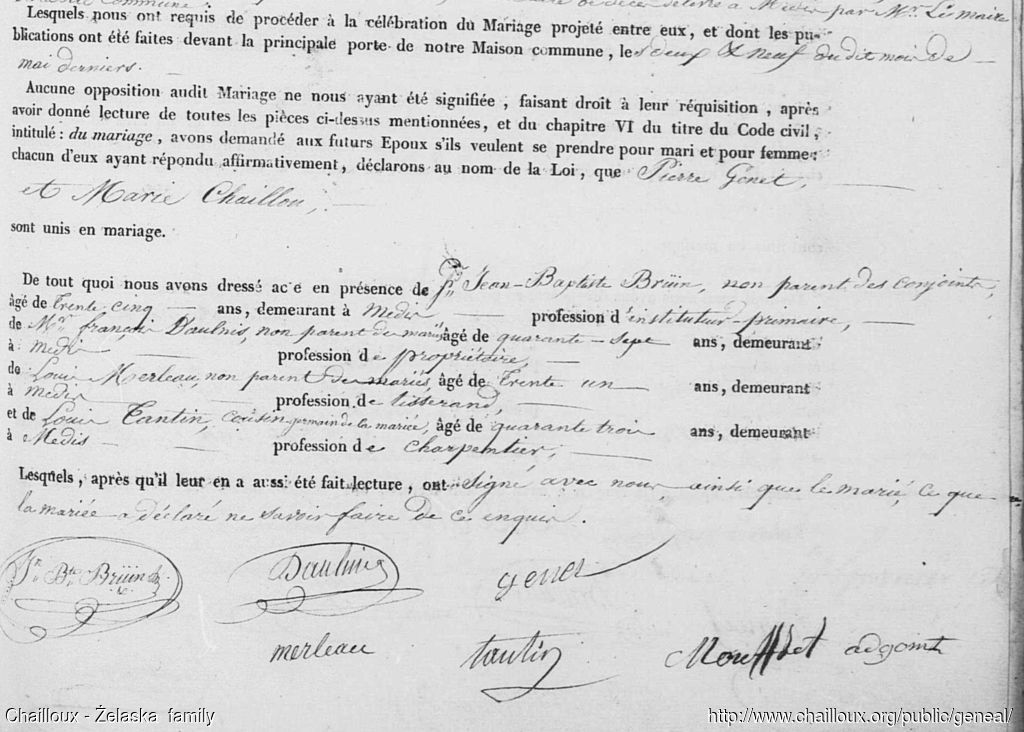 Lesquels nous ont requis de procéder à la célébration du Mariage projeté entre eux, et dont les pu-
blications ont été faites devant la principale porte de notre Maison commune, les deux & neuf du dit mois de
mai derniers.
Aucune opposition audit Mariage ne nous ayant été signifiée, faisant droit à leur réquisition, après
avoir donné lecture de toutes les pièces ci-dessus mentionnées, et du chapitre VI du titre du Code civil,
intitulé : du mariage, avons demandé aux futurs Epoux s'ils veulent se prendre pour mari et pour femme:
chacun d'eux ayant répondu affirmativement, déclarons au nom de la Loi, que Pierre Génet,
et Marie Chaillou,
sont unis en mariage.
De tout quoi nous avons dressé acte en présence de Jean-Baptiste Brüün, non parent des conjoints,
âgé de Trente cinq ans, demeurant à Médis profession d'instituteur primaire,
de Mr. françois Daulnis, non parent des mariés âgé de quarante-sept ans, demeurant
à Médis profession de propriétaire,
de Louis Merleau, non parent des mariés, âgé de Trente un ans, demeurant
à Médis profession de tisserand,
et de Louis Tantin, cousin germain de la mariée, âgé de quarante trois ans, demeurant
à Médis profession de charpentier,
Lesquels, après qu'il leur en a aussi été fait lecture, ont signé avec nous, ainsi que le marié, ce que
la mariée a déclaré ne savoir faire de ce enquis.
Jn. Bte. Brüün Daulnis genet
merleau tantin adgoint
Chailloux - Żelaska family http://www.chailloux.org/public/geneal/